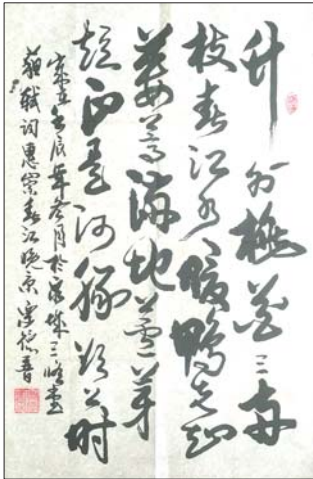 竹外桃花三两
枝春江水暖鴨先知
蒌蒿满地蘆芽
短正是河豚欲上时
壬辰年冬月於城三峰堂
蘇軾词惠崇春江晓景